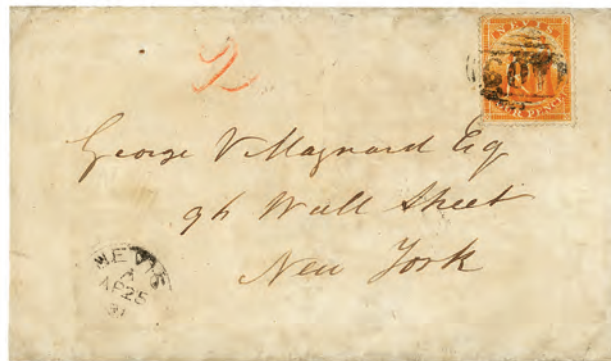 NEVIS
FOUR PENCE
A09
2
George V Maynard Esq
96 Wall Street
New York
NEVIS
A
AP 25